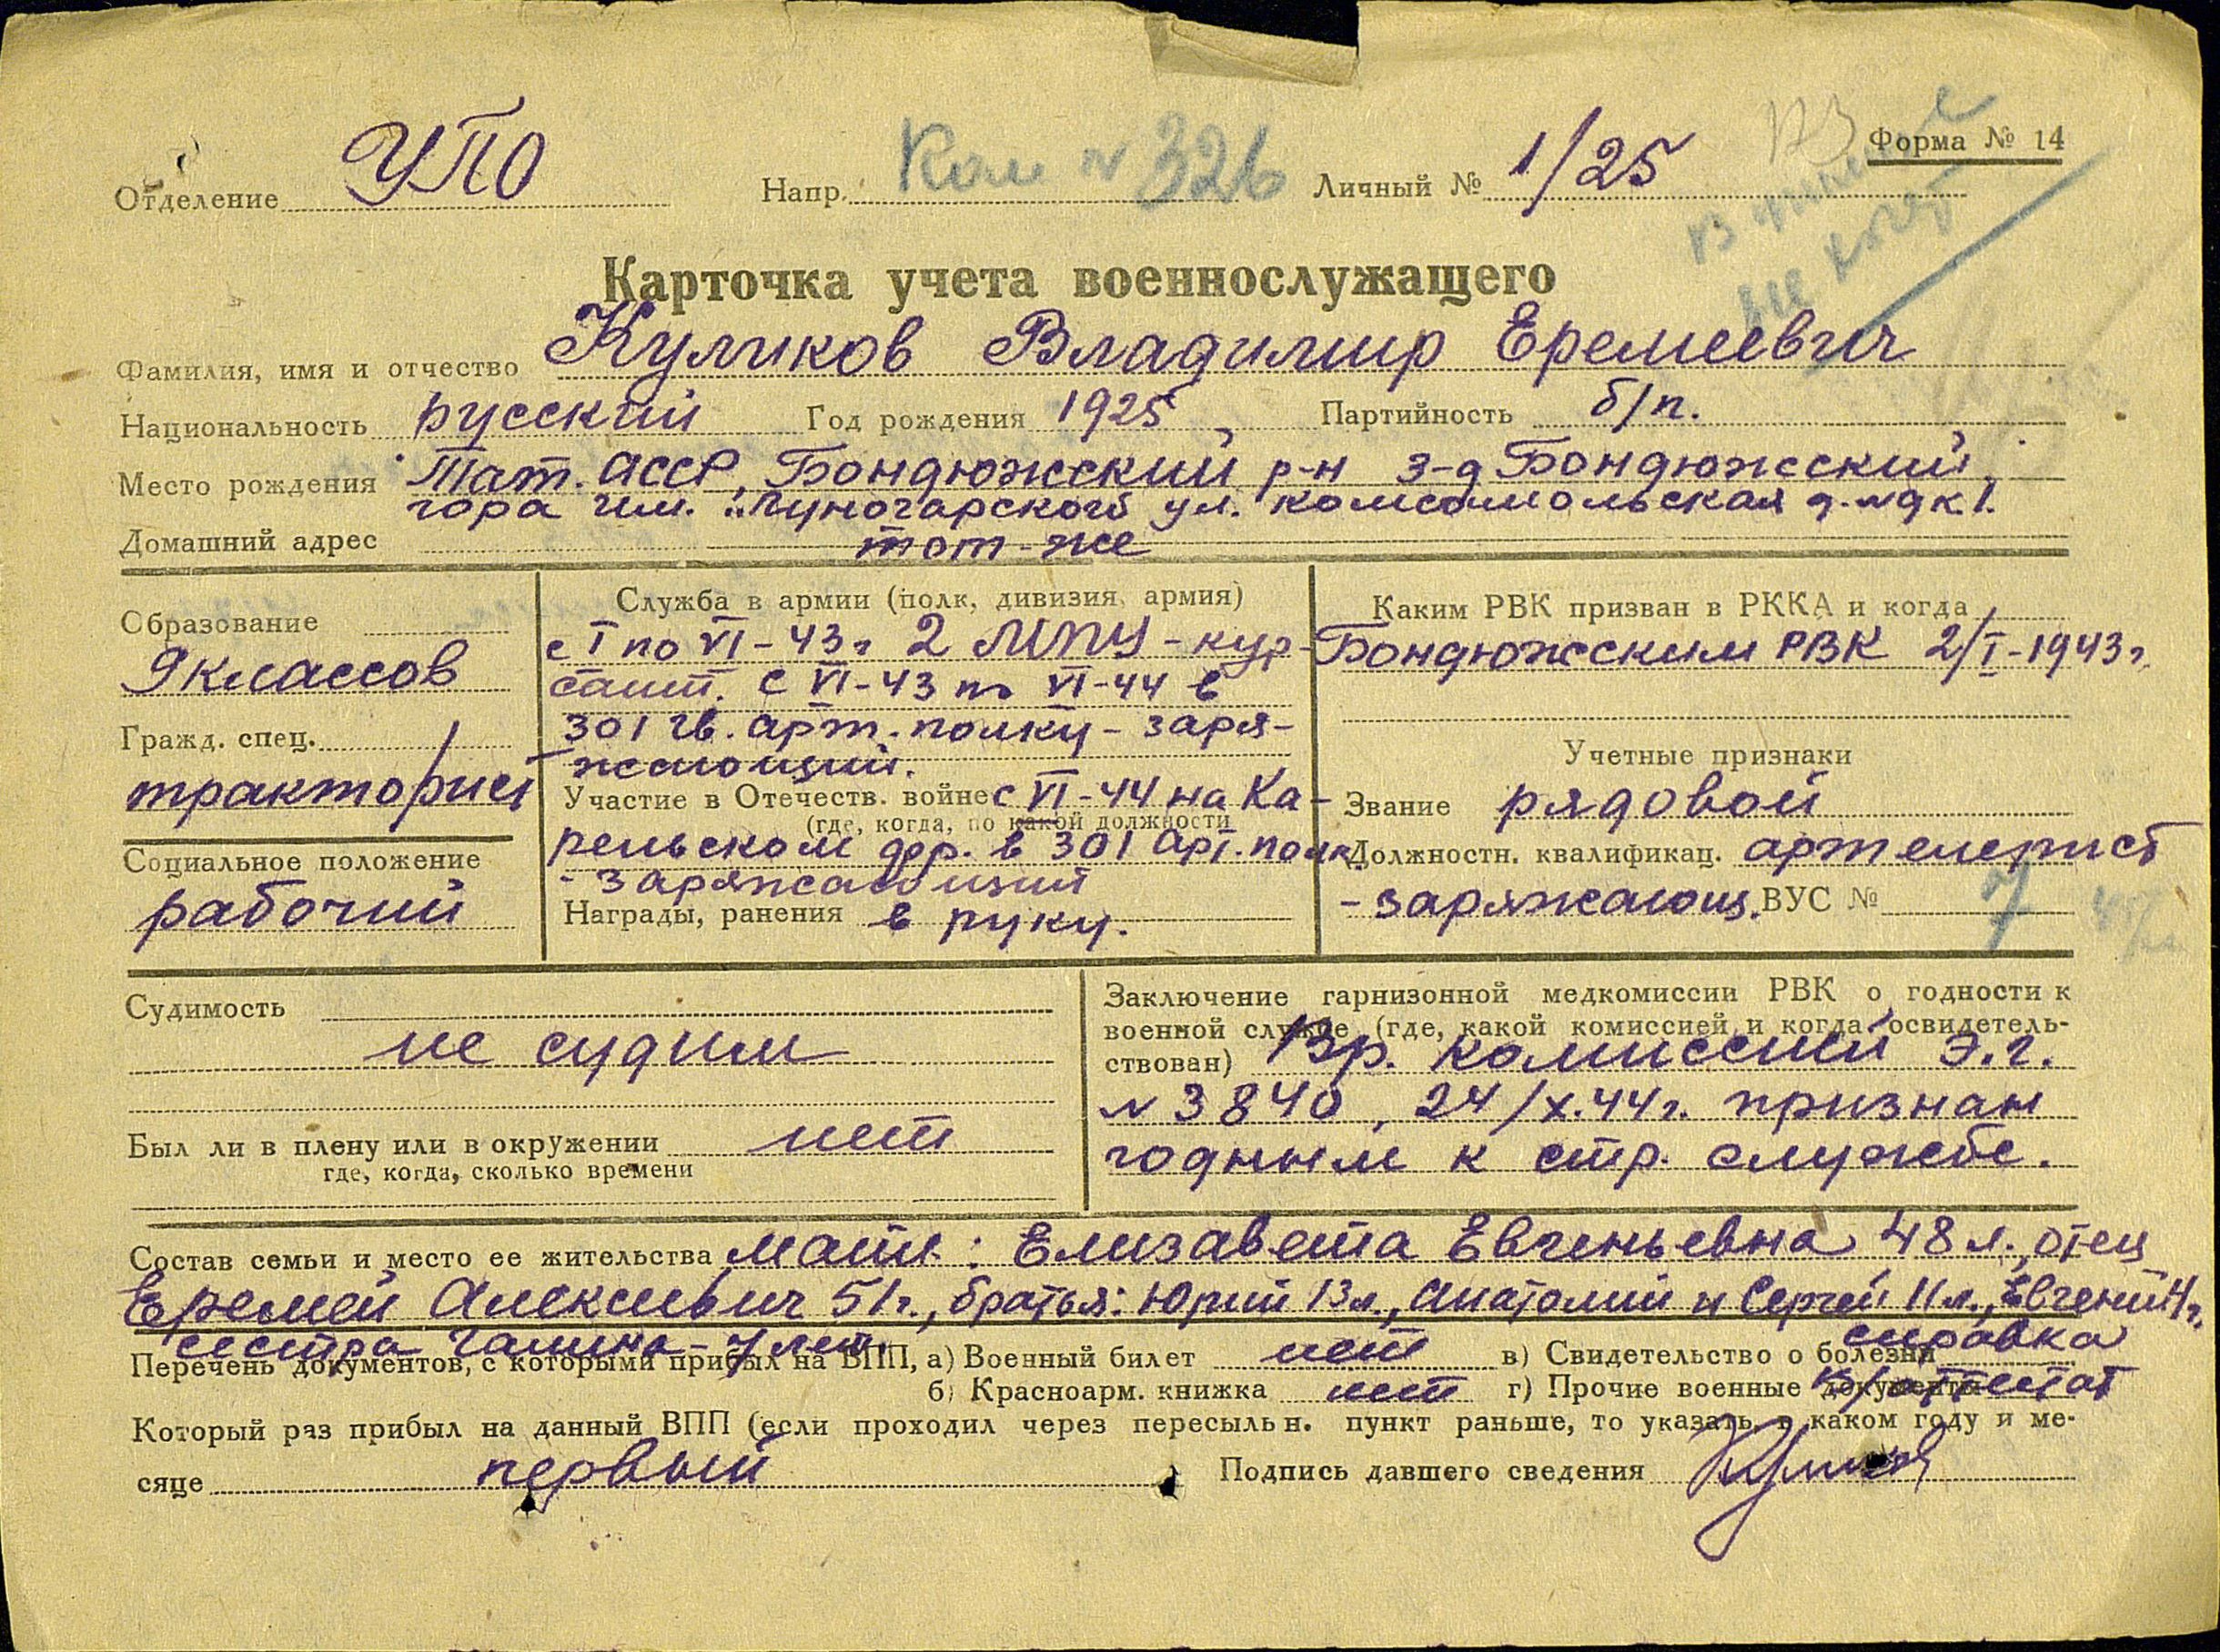 Форма № 14
Отделение УПО Напр. Ком № 326 Личный № 1/25
Карточка учета военнослужащего
Фамилия, имя и отчество Куликов Владимир Еремеевич
Национальность русский Год рождения 1925 Партийность б/п.
Место рождения Тат. АССР, Бондюжский р-н з-д Бондюжский,
гора им. Луночарского ул. комсомольская д. №9 к.1.
Домашний адрес тот-же
Образование
9 классов
Гражд. спец.
тракторист
Социальное положение
рабочий
Служба в армии (полк, дивизия, армия)
с I по VI-43 г 2 МПУ - кур-
сант. с VI-43 по VI-44 в
301 гв. арт. полку - заря-
жающий.
Участие в Отечеств. войне с VI-44 на Ка-
(где, когда, по какой должности
рельском фр. в 301 арт. полк
- заряжающий
Награды, ранения в руку.
Каким РВК призван в РККА и когда
Бондюжским РВК 2/I-1943 г.
Учетные признаки
Звание рядовой
Должностн. квалификац. артелерист
- заряжающ. ВУС № 7
Судимость
не судим
Был ли в плену или в окружении нет
где, когда, сколько времени
Заключение гарнизонной медкомиссии РВК о годности к
военной службе (где, какой комиссией и когда освидетель-
ствован) Вр. комиссией э.г.
№ 3840, 24/X.44 г. признан
годным к стр. службе.
Состав семьи и место ее жительства мать: Елизавета Евгеньевна 48 л., отец
Еремей Алексеевич 51 г., братья: Юрий 13 л., Анатолий и Сергей 11 л., Евгений 4 г.
сестра Галина - 7 лет.
Перечень документов, с которыми прибыл на ВПП, а) Военный билет нет в) Свидетельство о болезни справка
б) Красноарм. книжка нет г) Прочие военные документы аттестат
Который раз прибыл на данный ВПП (если проходил через пересыльн. пункт раньше, то указать в каком году и ме-
сяце первый Подпись давшего сведения